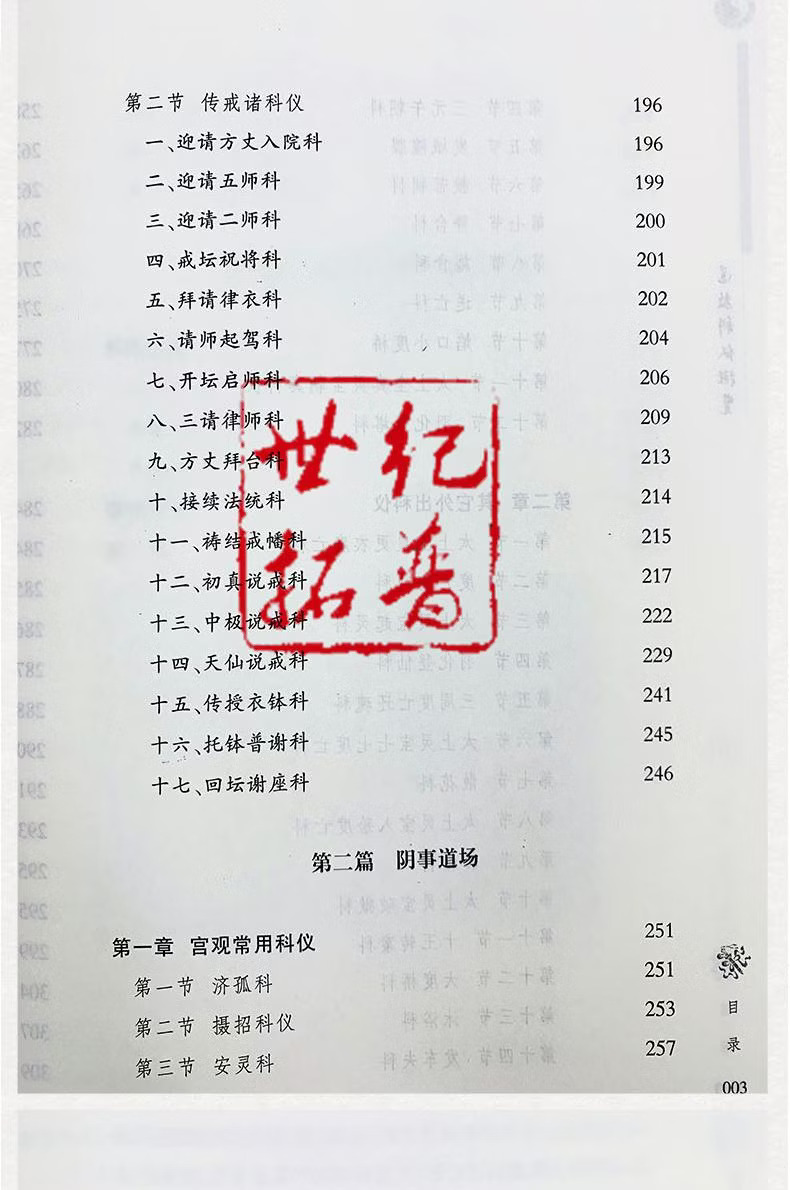 第二节 传戒诸科仪 196
一、迎请方丈入院科 196
二、迎请五师科 199
三、迎请二师科 200
四、戒坛祝将科 201
五、拜请律衣科 202
六、请师起驾科 204
七、开坛启师科 206
八、三请律师科 209
九、方丈拜台科 213
十、接续法统科 214
十一、祷结戒幡科 215
十二、初真说戒科 217
十三、中极说戒科 222
十四、天仙说戒科 229
十五、传授衣钵科 241
十六、托钵普谢科 245
十七、回坛谢座科 246
世纪
拓普
第二篇 阴事道场
第一章 宫观常用科仪 251
第一节 济孤科 251
第二节 摄招科仪 253
第三节 安灵科 257
目录
003